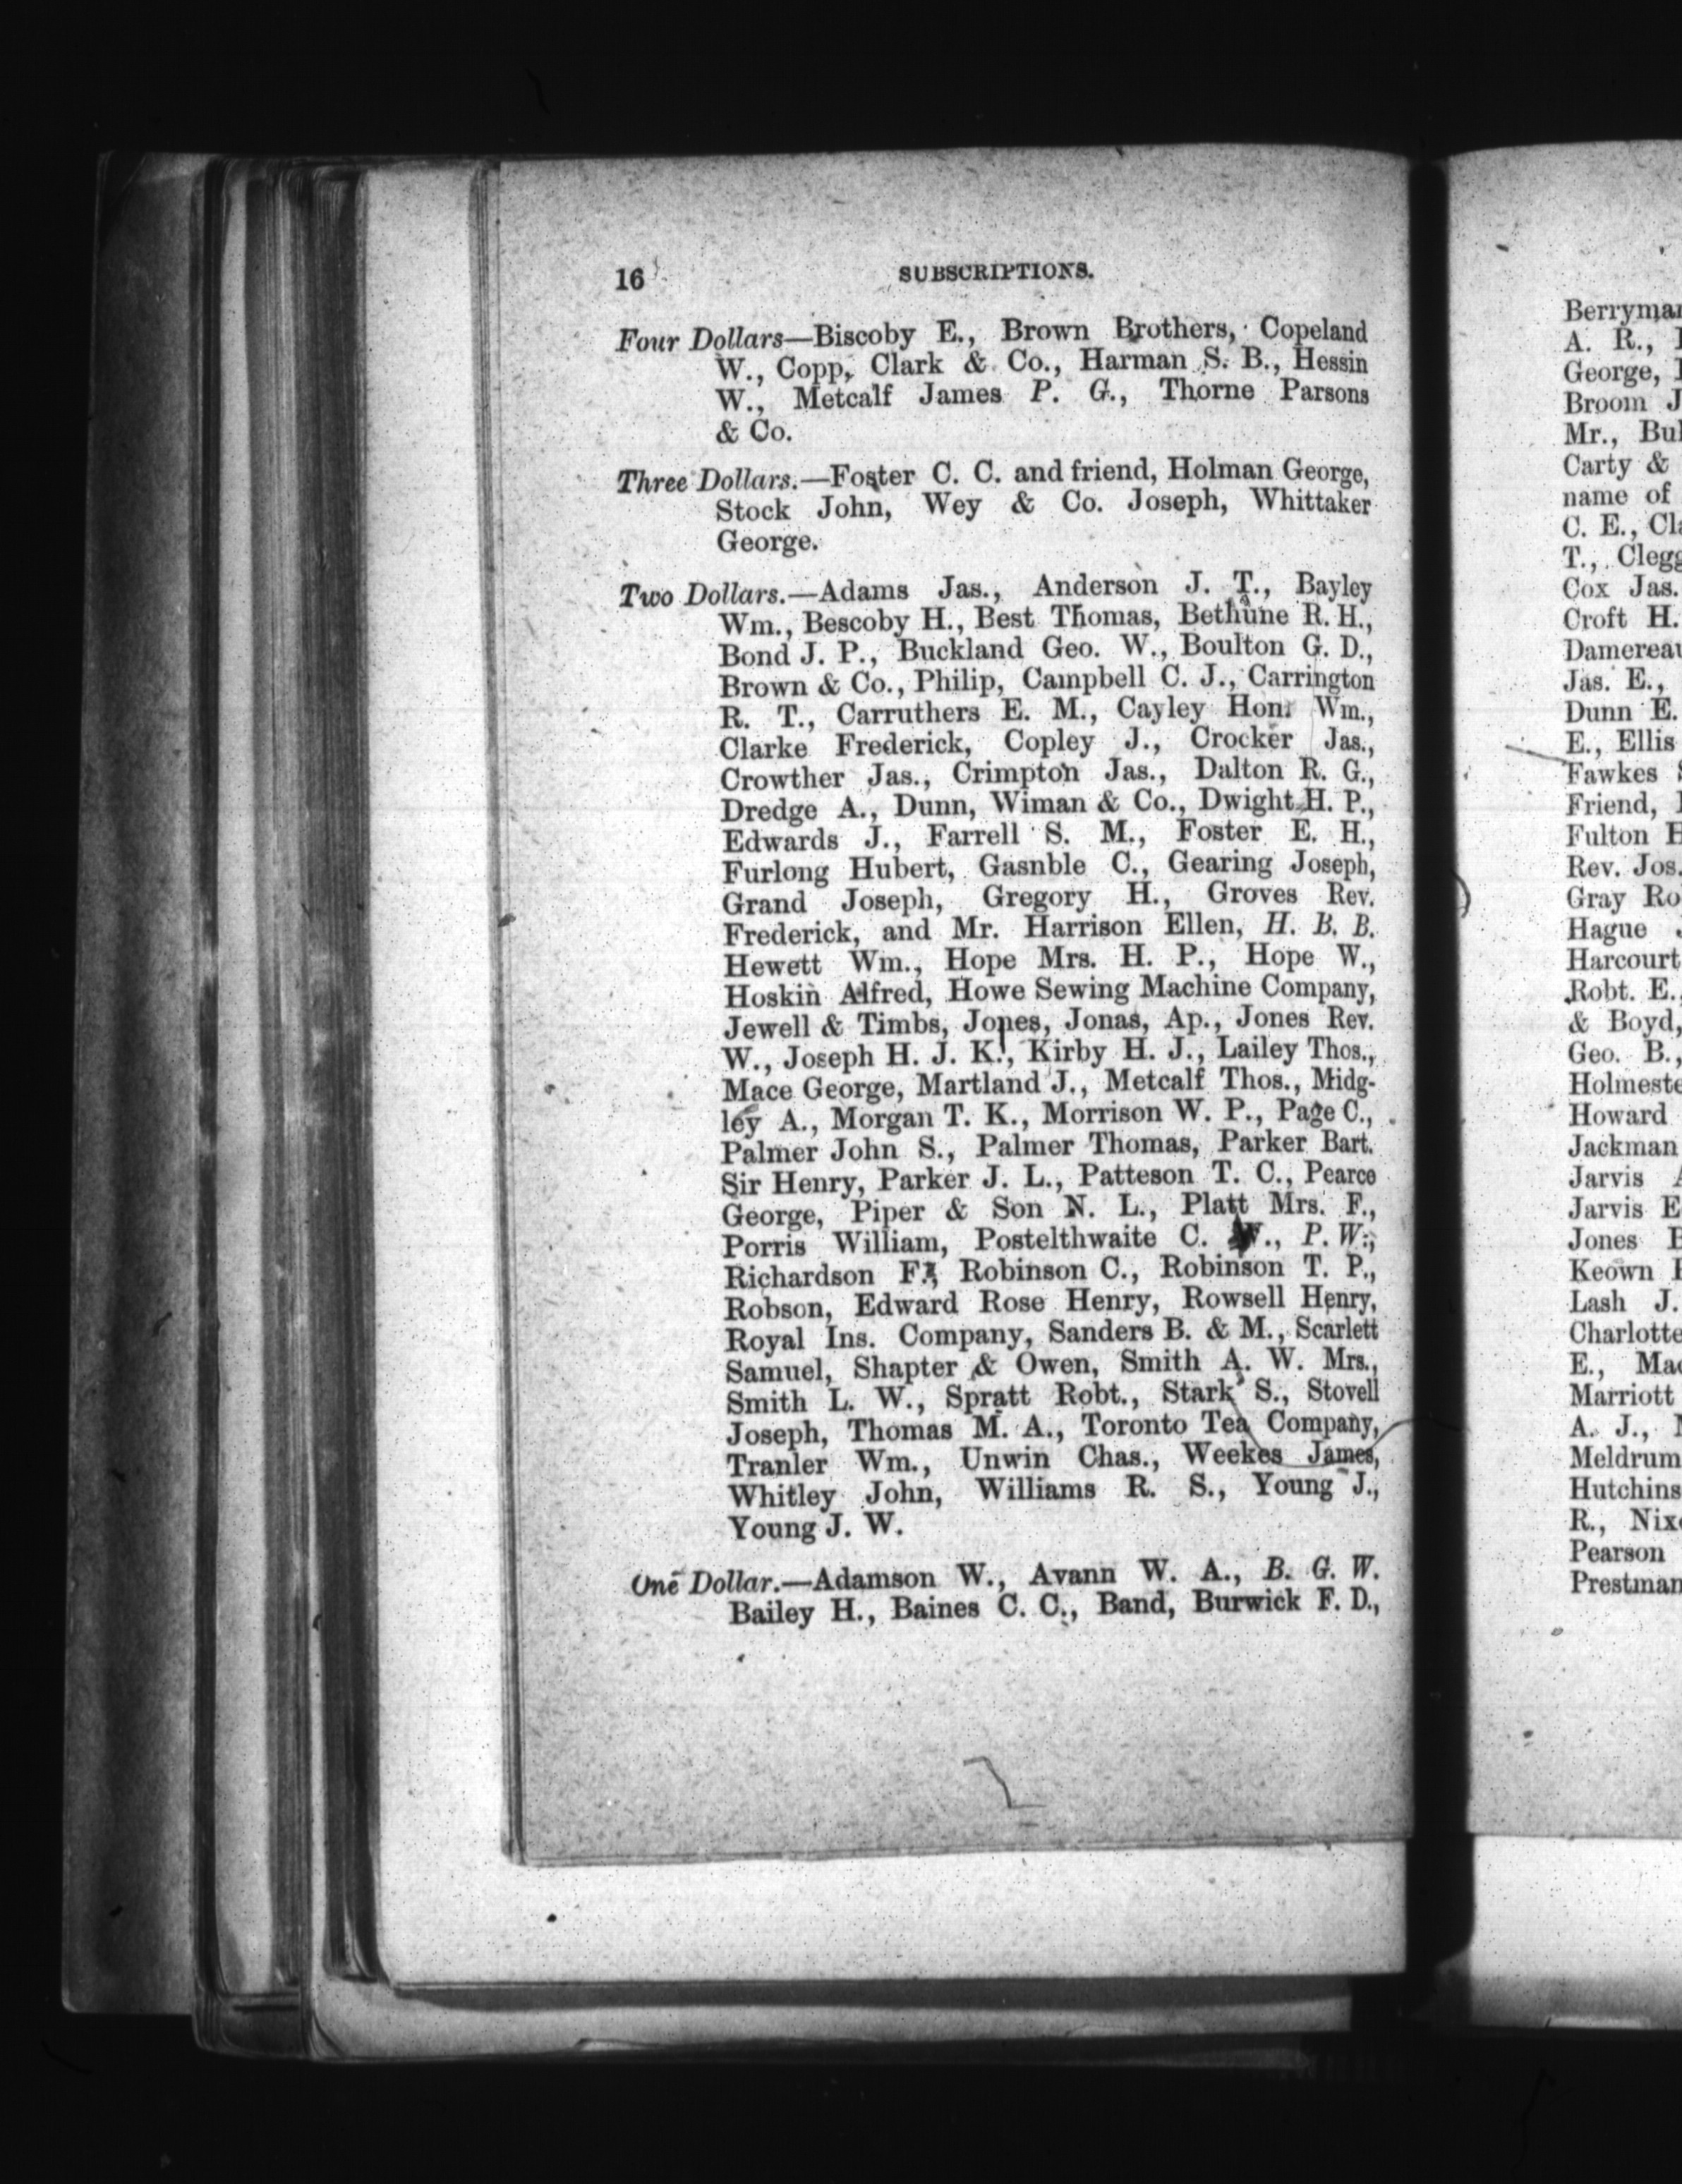 16
SUBSCRIPTIONS.
Four Dollars—Biscoby E., Brown Brothers, Copeland
W., Copp, Clark & Co., Harman S. B., Hessin
W., Metcalf James P. G., Thorne Parsons
& Co.
Three Dollars.—Foster C. C. and friend, Holman George,
Stock John, Wey & Co. Joseph, Whittaker
George.
Two Dollars.—Adams Jas., Anderson J. T., Bayley
Wm., Bescoby H., Best Thomas, Bethune R. H.,
Bond J. P., Buckland Geo. W., Boulton G. D.,
Brown & Co., Philip, Campbell C. J., Carrington
R. T., Carruthers E. M., Cayley Hon. Wm.,
Clarke Frederick, Copley J., Crocker Jas.,
Crowther Jas., Crimpton Jas., Dalton R. G.,
Dredge A., Dunn, Wiman & Co., Dwight H. P.,
Edwards J., Farrell S. M., Foster E. H.,
Furlong Hubert, Gasnble C., Gearing Joseph,
Grand Joseph, Gregory H., Groves Rev.
Frederick, and Mr. Harrison Ellen, H. B. B.
Hewett Wm., Hope Mrs. H. P., Hope W.,
Hoskin Alfred, Howe Sewing Machine Company,
Jewell & Timbs, Jones, Jonas, Ap., Jones Rev.
W., Joseph H. J. K., Kirby H. J., Lailey Thos.,
Mace George, Martland J., Metcalf Thos., Midg-
ley A., Morgan T. K., Morrison W. P., Page C.,
Palmer John S., Palmer Thomas, Parker Bart.
Sir Henry, Parker J. L., Patteson T. C., Pearce
George, Piper & Son N. L., Platt Mrs. F.,
Porris William, Postelthwaite C. W., P. W.,
Richardson F., Robinson C., Robinson T. P.,
Robson, Edward Rose Henry, Rowsell Henry,
Royal Ins. Company, Sanders B. & M., Scarlett
Samuel, Shapter & Owen, Smith A. W. Mrs.,
Smith L. W., Spratt Robt., Stark S., Stovell
Joseph, Thomas M. A., Toronto Tea Company,
Tranler Wm., Unwin Chas., Weekes James,
Whitley John, Williams R. S., Young J.,
Young J. W.
One Dollar.—Adamson W., Avann W. A., B. G. W.
Bailey H., Baines C. C., Band, Burwick F. D.,
A. R.,
George,
Broom J
Mr.,
Carty &
name of
C. E.,
T., Clegg
Cox Jas.
Croft H.
Jas. E.,
Dunn E.
E., Ellis
Fawkes
Friend,
Fulton
Rev. Jos.
Gray
Hague
Harcourt
Robt. E.,
& Boyd,
Geo. B.,
Howard
Jackman
Jarvis
Jarvis E
Jones
Keown
Lash J.
Charlotte
E.,
Marriott
A. J.,
Meldrum
R.,
Pearson